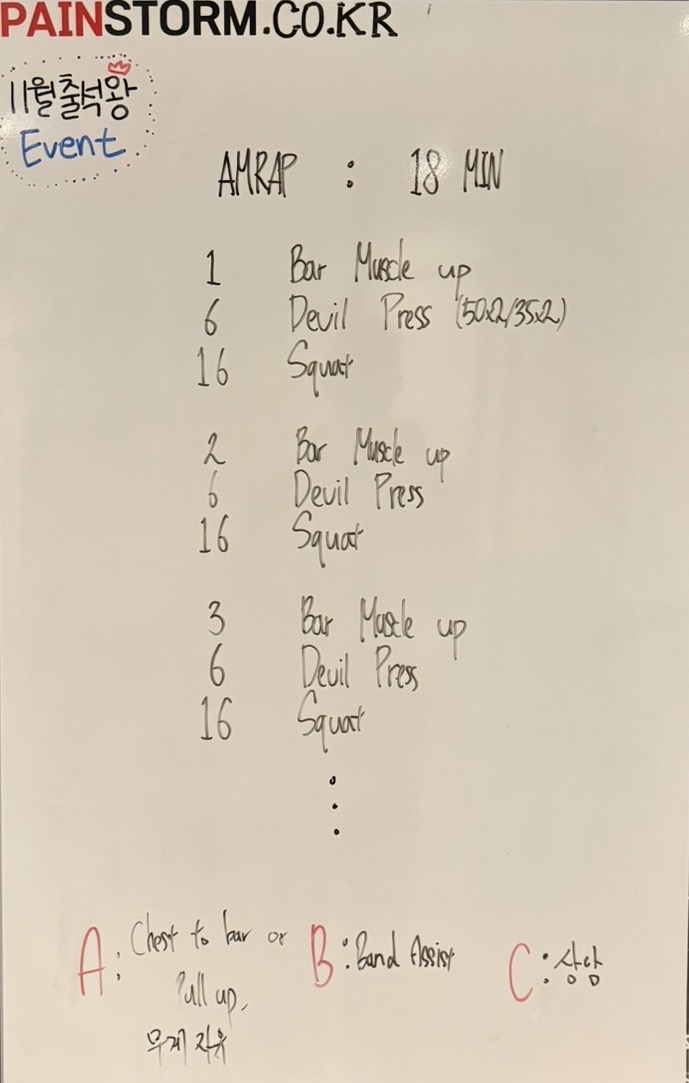 PAINSTORM.CO.KR
11월 출석왕
Event
AMRAP : 18 MIN
1 Bar Muscle up
6 Devil Press (50x2/35x2)
16 Squat
2 Bar Muscle up
6 Devil Press
16 Squat
3 Bar Muscle up
6 Devil Press
16 Squat
A: Chest to bar or
Pull up,
무게 자유
B: Band Assist
C: 상담